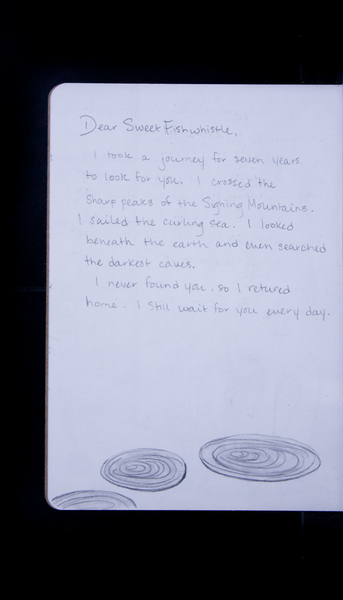 Dear Sweet Fishwhistle,
I took a journey for seven years
to look for you. I crossed the
sharp peaks of the Sighing Mountains.
I sailed the curling sea. I looked
beneath the earth and even searched
the darkest caves.
I never found you, so I retured
home. I still wait for you every day.